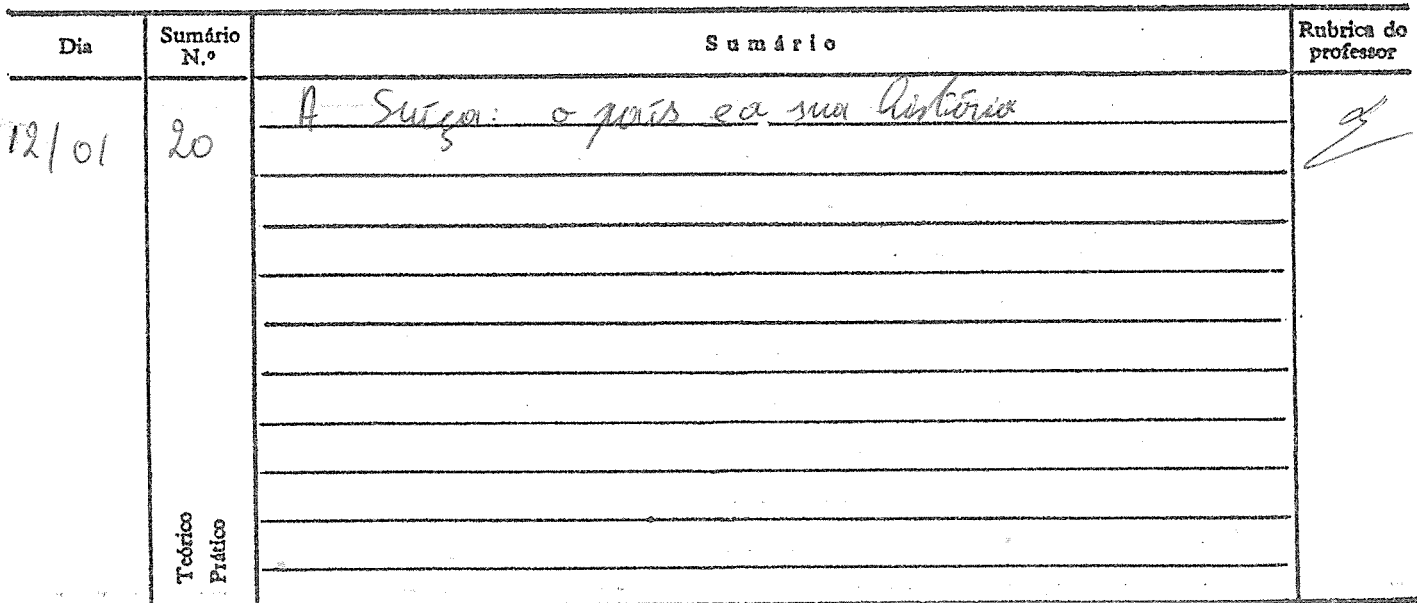 Dia
Sumário N.º
Sumário
Rubrica do professor
12/01
20
A Suíça: o país e a sua história
Teórico
Prático